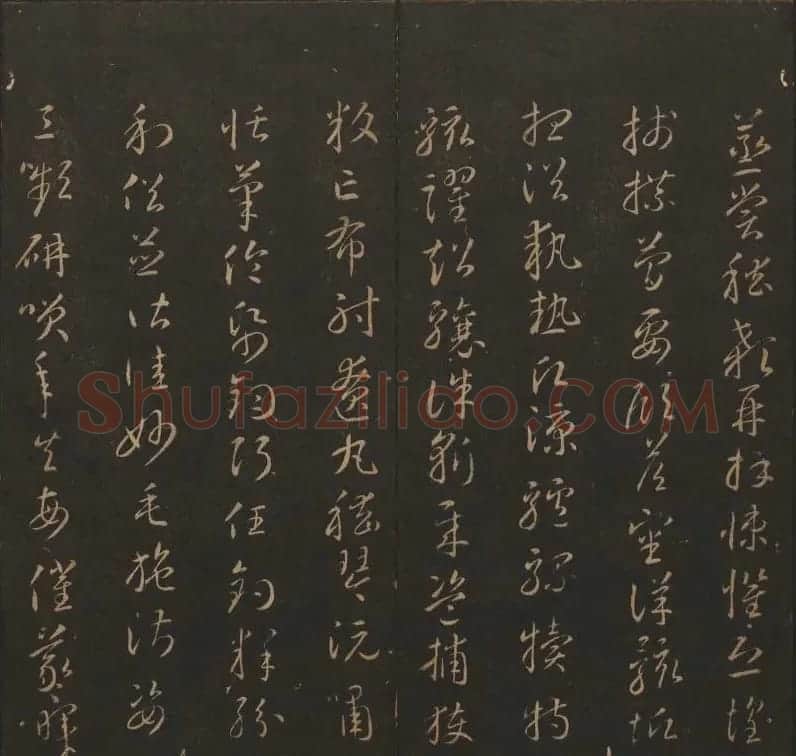 蒸嘗稽顙再拜悚懼恐惶
牋牒簡要顧答審詳骸垢
想浴執熱願涼驢騾犢特
駭躍超驤誅斬賊盜捕獲
叛亡布射遼丸嵇琴阮嘯
恬筆倫紙鈞巧任釣釋紛
利俗並皆佳妙毛施淑姿
工顰妍笑年矢每催羲暉
Shufaziliao.COM